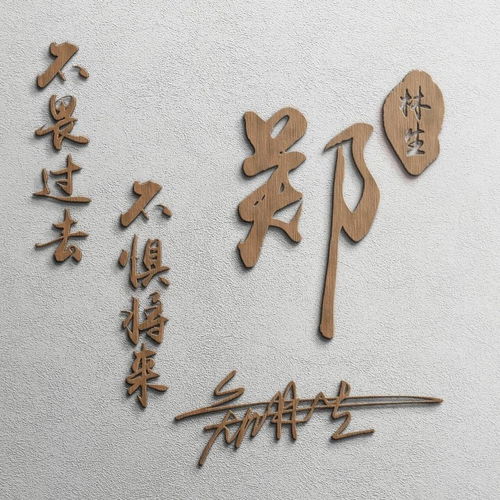 不畏过去
不惧将来
郑
林生